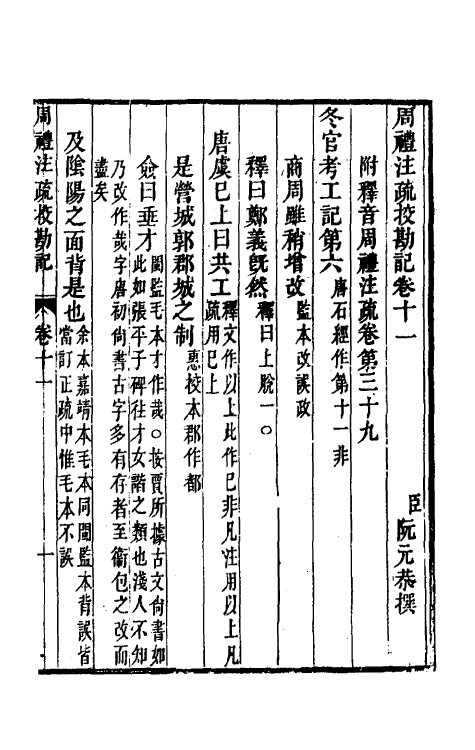 周禮注疏挍勘記卷十一
臣阮元恭撰
附釋音周禮注疏卷第三十九
冬官考工記第六唐石經作第十一非
商周雖稍增改監本改誤政
釋曰鄭義旣然釋曰上脫一○
唐虞巳上曰共工釋文作以上此作巳非凡注用以上凡
疏用巳上
是營城郭郡城之制惠挍本郡作都
僉曰垂才閩監毛本才作哉○按賈所據古文尙書如
此如張平子碑往才女諧之類也淺人不知
乃改作哉字唐初尙書古字多有存者至衞包之改而
盡矣
及陰陽之面背是也余本嘉靖本毛本同閩監本背誤皆
當訂正疏中惟毛本不誤
周禮注疏挍勘記
卷十一
一